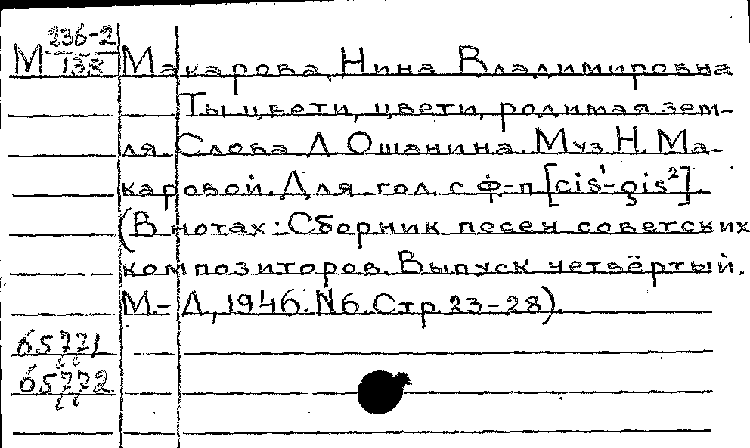 М 236-2/138 Макарова Нина Владимировна
Ты цвети, цвети, родимая зем-
ля. Слова Л Ошанина. Муз Н. Ма-
каровой. Для гол. с ф-п [cis¹-gis²].
(В нотах: Сборник песен советских
композиторов. Выпуск четвёртый.
М.-Л, 1946. N6. Стр 23-28).
65771
65772